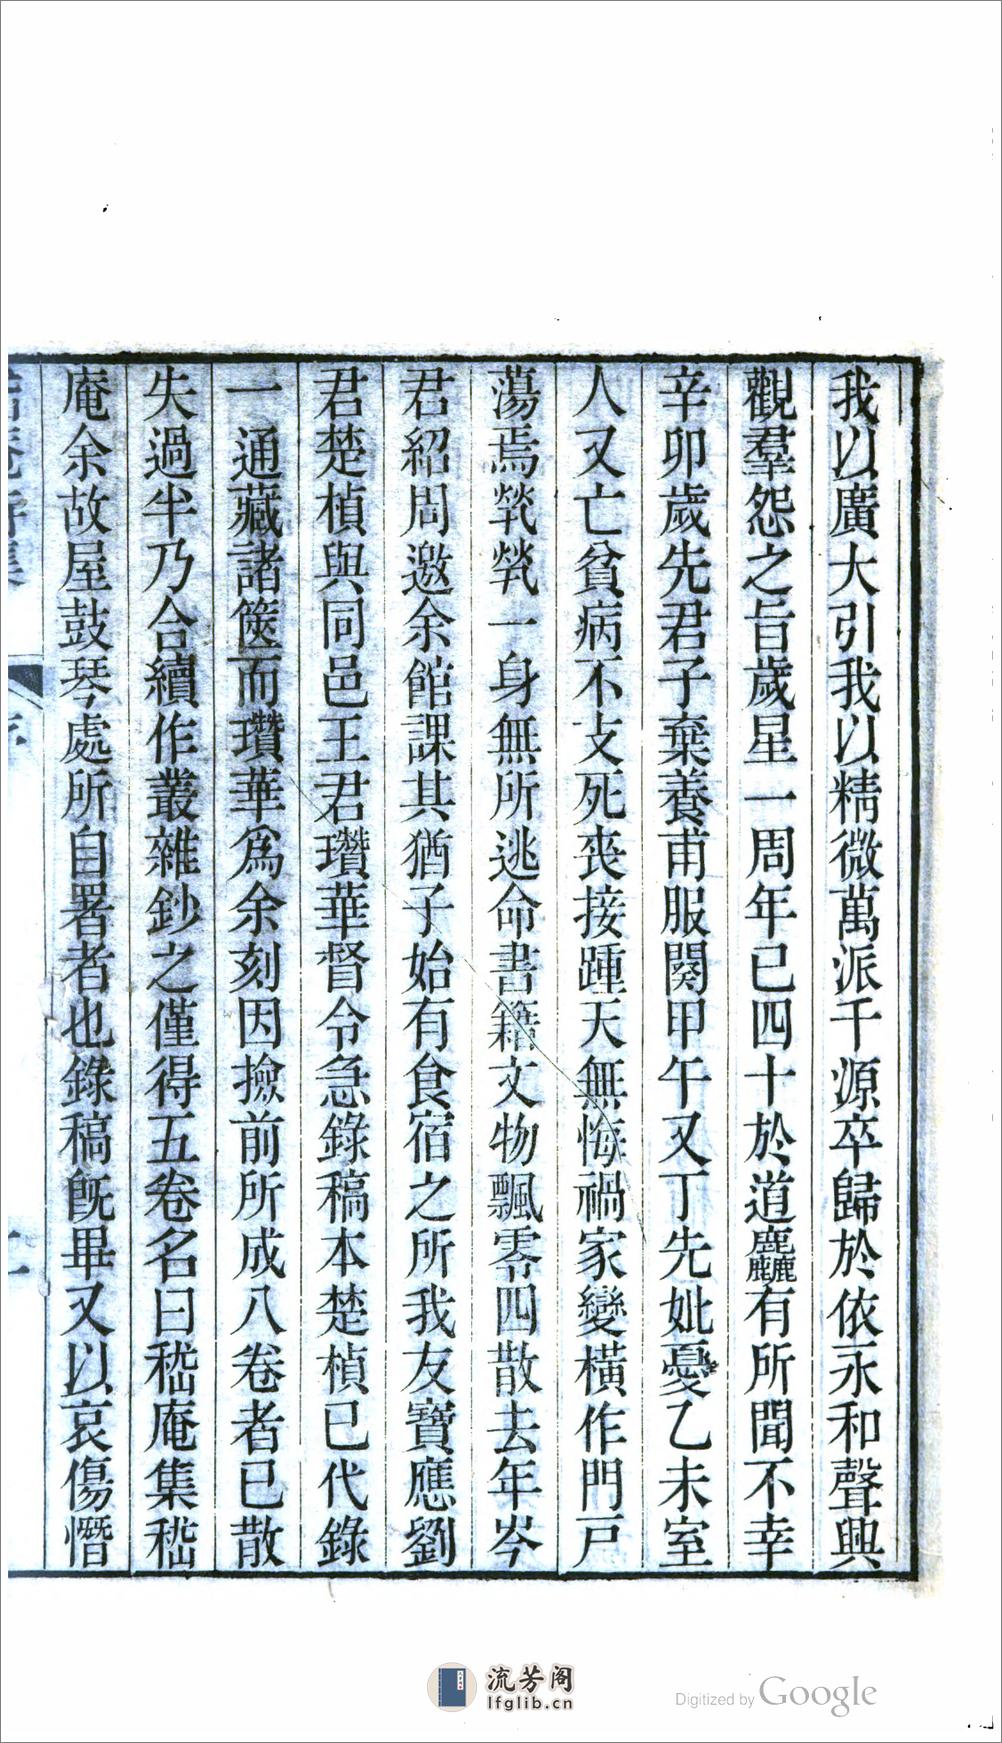 我以廣大引我以精微萬派千源卒歸於依永和聲興
觀羣怨之旨歲星一周年已四十於道麤有所聞不幸
辛卯歲先君子棄養甫服闋甲午又丁先妣憂乙未室
人又亡貧病不支死喪接踵天無悔禍家變橫作門戸
蕩焉煢煢一身無所逃命書籍文物飄零四散去年岑
君紹周邀余館課其猶子始有食宿之所我友寶應劉
君楚楨與同邑王君瓚華督令急錄稿本楚楨已代錄
一通藏諸篋而瓚華爲余刻因撿前所成八卷者已散
失過半乃合續作叢雜鈔之僅得五卷名曰嵇庵集嵇
庵余故屋鼓琴處所自署者也錄稿旣畢又以哀傷憯
序
流芳阁
lfglib.cn
Digitized by Google